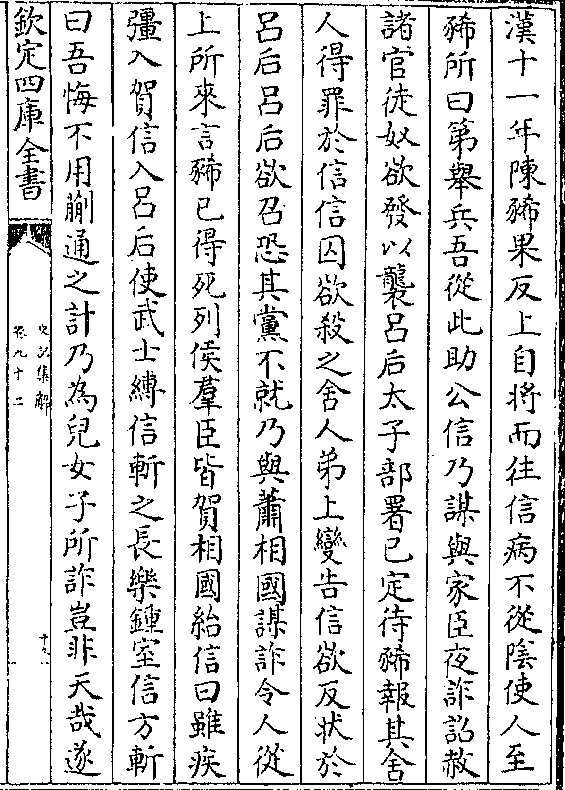 漢十一年陳豨果反上自將而往信病不從隂使人至
豨所曰第舉兵吾從此助公信乃謀與家臣夜詐詔赦
諸官徒奴欲發以襲吕后太子部署已定待豨報其舍
人得罪於信信囚欲殺之舍人弟上變告信欲反狀於
吕后吕后欲召恐其黨不就乃與蕭相國謀詐令人從
上所來言豨已得死列侯羣臣皆賀相國紿信曰雖疾
彊入賀信入吕后使武士縛信斬之長樂鍾室信方斬
曰吾悔不用蒯通之計乃為兒女子所詐豈非天哉遂
欽定四庫全書
史記集解
卷九十二